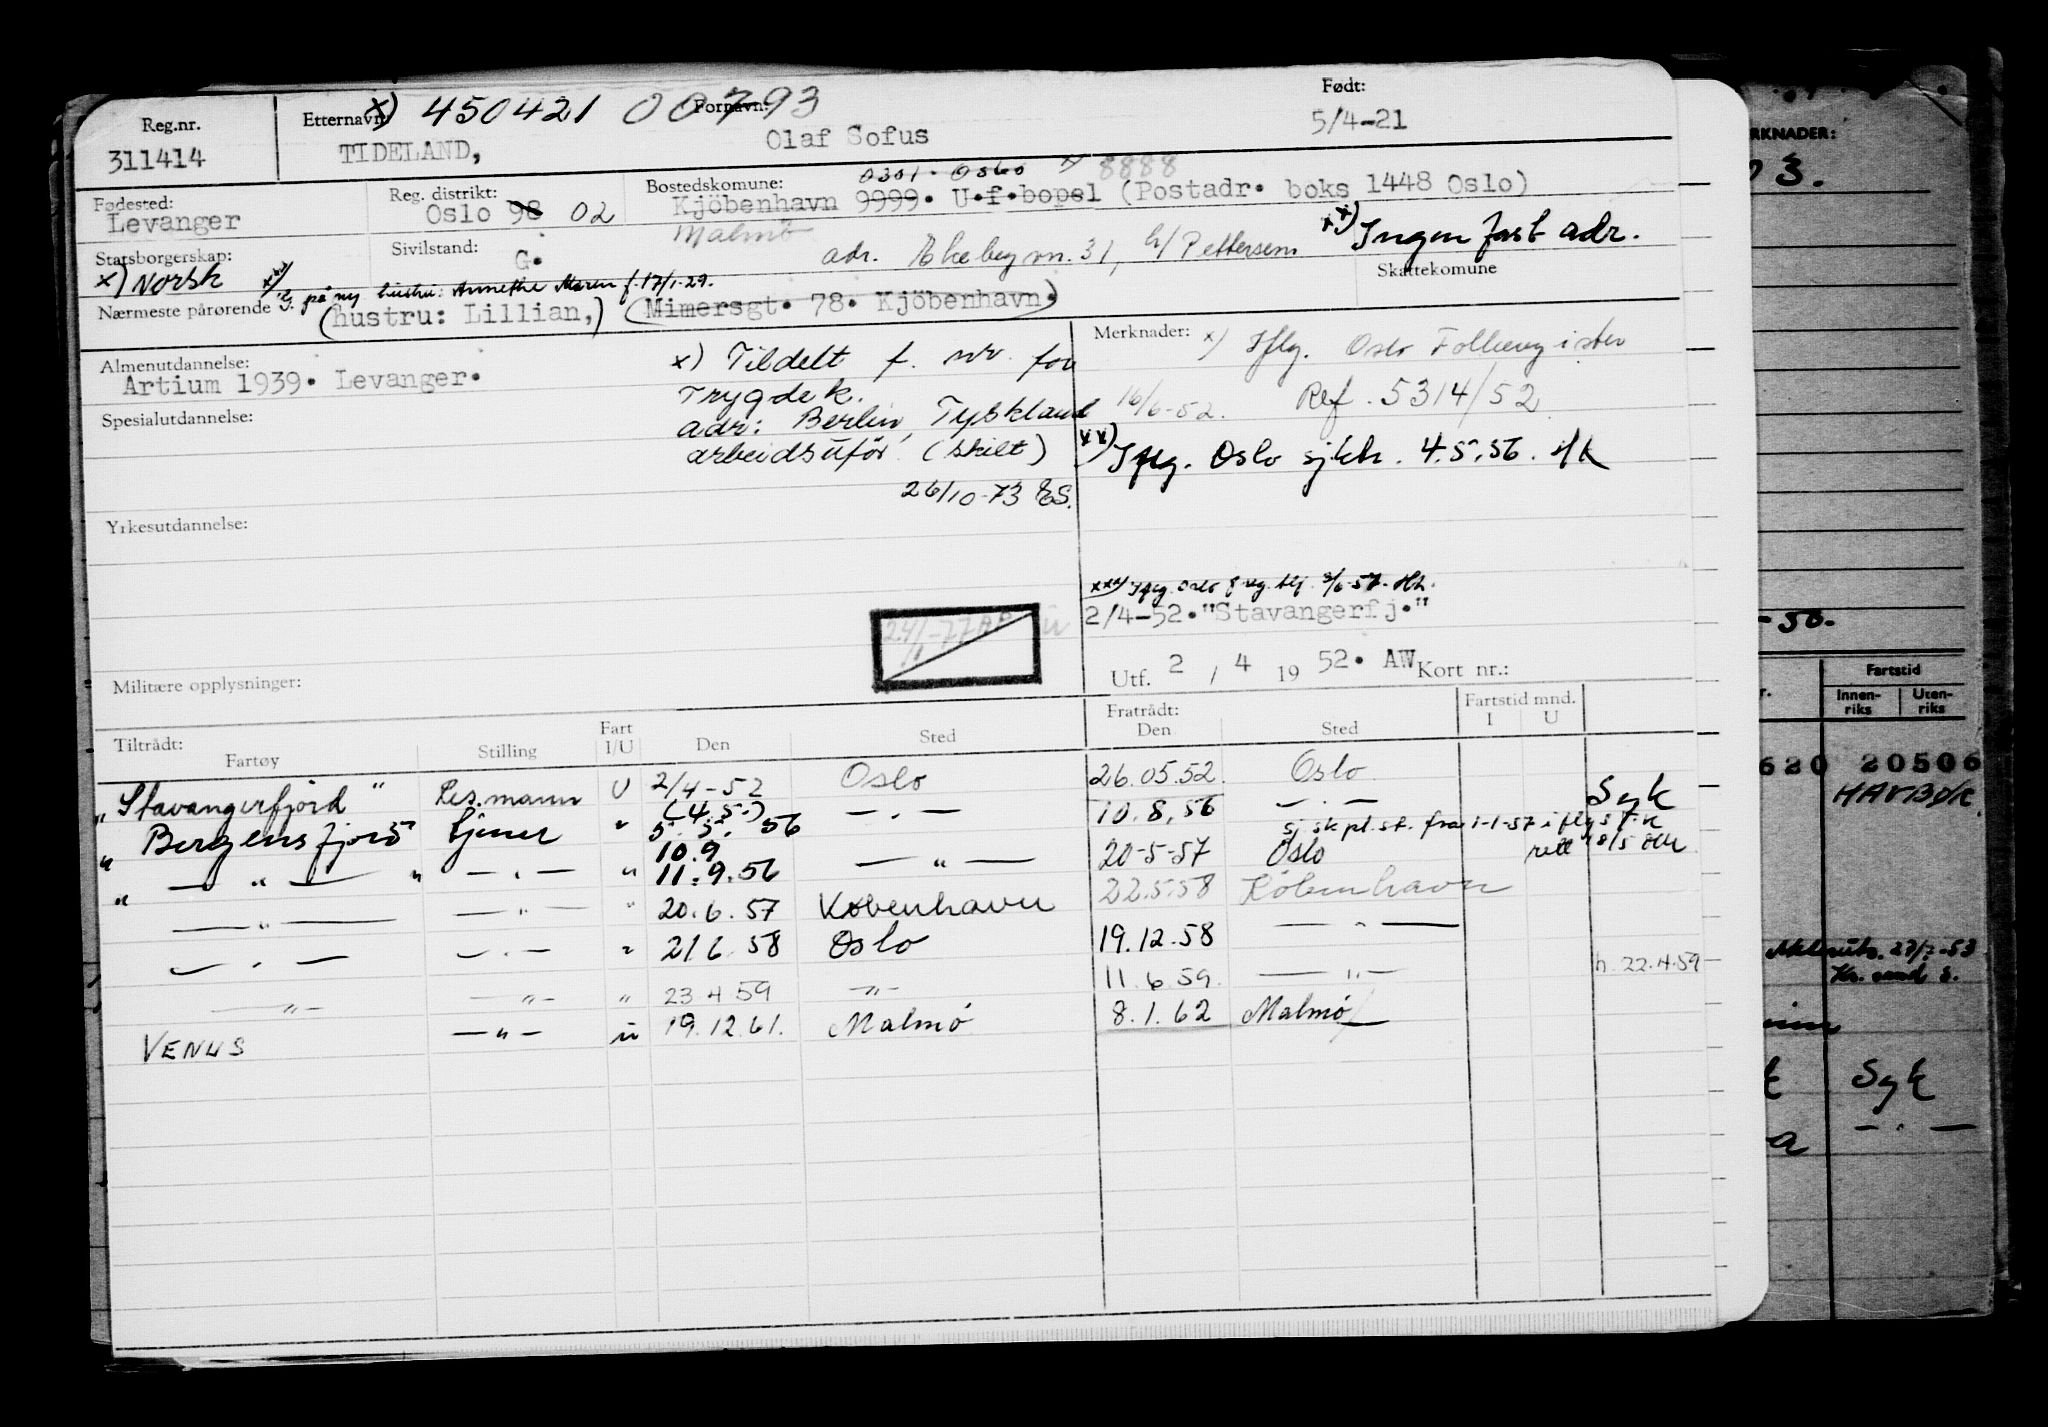 Reg.nr. Etternavn: x) 450421 00793 Fornavn: Født:
311414 TIDELAND, Olaf Sofus 5/4-21
Fødested: Reg. distrikt: Bostedskomune: 0301. Oslo x) 8888
Levanger Oslo 98 02 Kjöbenhavn 9999. U.f.bopel (Postadr. boks 1448 Oslo)
Malmö
Statsborgerskap: Sivilstand: adr. 31, h/ Pettersen xx) Ingen fast adr.
x) Norsk G. Skattekomune
xxx) G. på ny hustru: Annethe Maren f. 17/1-29.
Nærmeste pårørende (hustru: Lillian,) (Mimersgt. 78. Kjöbenhavn.)
Almenutdannelse:
Artium 1939. Levanger.
Spesialutdannelse:
x) Tildelt f. nr. for
Trygdek.
adr: Berlin, Tyskland
arbeidsufør (skilt)
26/10-73 ES.
Yrkesutdannelse:
Militære opplysninger:
Merknader: x) Iflg. Oslo Folkeregister
16/6-52. Ref. 5314/52
xx) Iflg. Oslo sjktr. 4.5.56.
xxx) Iflg. Oslo
2/4-52."Stavangerfj."
Utf. 2 / 4 1952. AW Kort nr.:
Tiltrådt: Fart Fratrådt: Fartstid mnd.
Fartøy Stilling I/U Den Sted Den Sted I U
"Stavangerfjord" Les.mann U 2/4-52 Oslo 26.05.52. Oslo
"Bergensfjord tjener " (4.5.) 5. 5. 56 — . — 10.8.56 — . — Syk
sj sk pl. st. fra 1-1-57 iflg
" — " — " — . — " 10.9 11.9.56 — " — 20-5-57 Oslo
— " — — " — " 20.6.57 København 22.5.58 København
— . — — . — " 21.6.58 Oslo 19.12.58 — " —
— " — — " — " 23 4 59 — " — 11.6.59. — " — h. 22.4.59
VENUS — " — u 19.12.61. Malmö 8.1.62 Malmö
RKNADER:
03.
-50.
Fartstid
Innen-riks Uten-riks
620 20506
HAVBØK
Syk
— . —